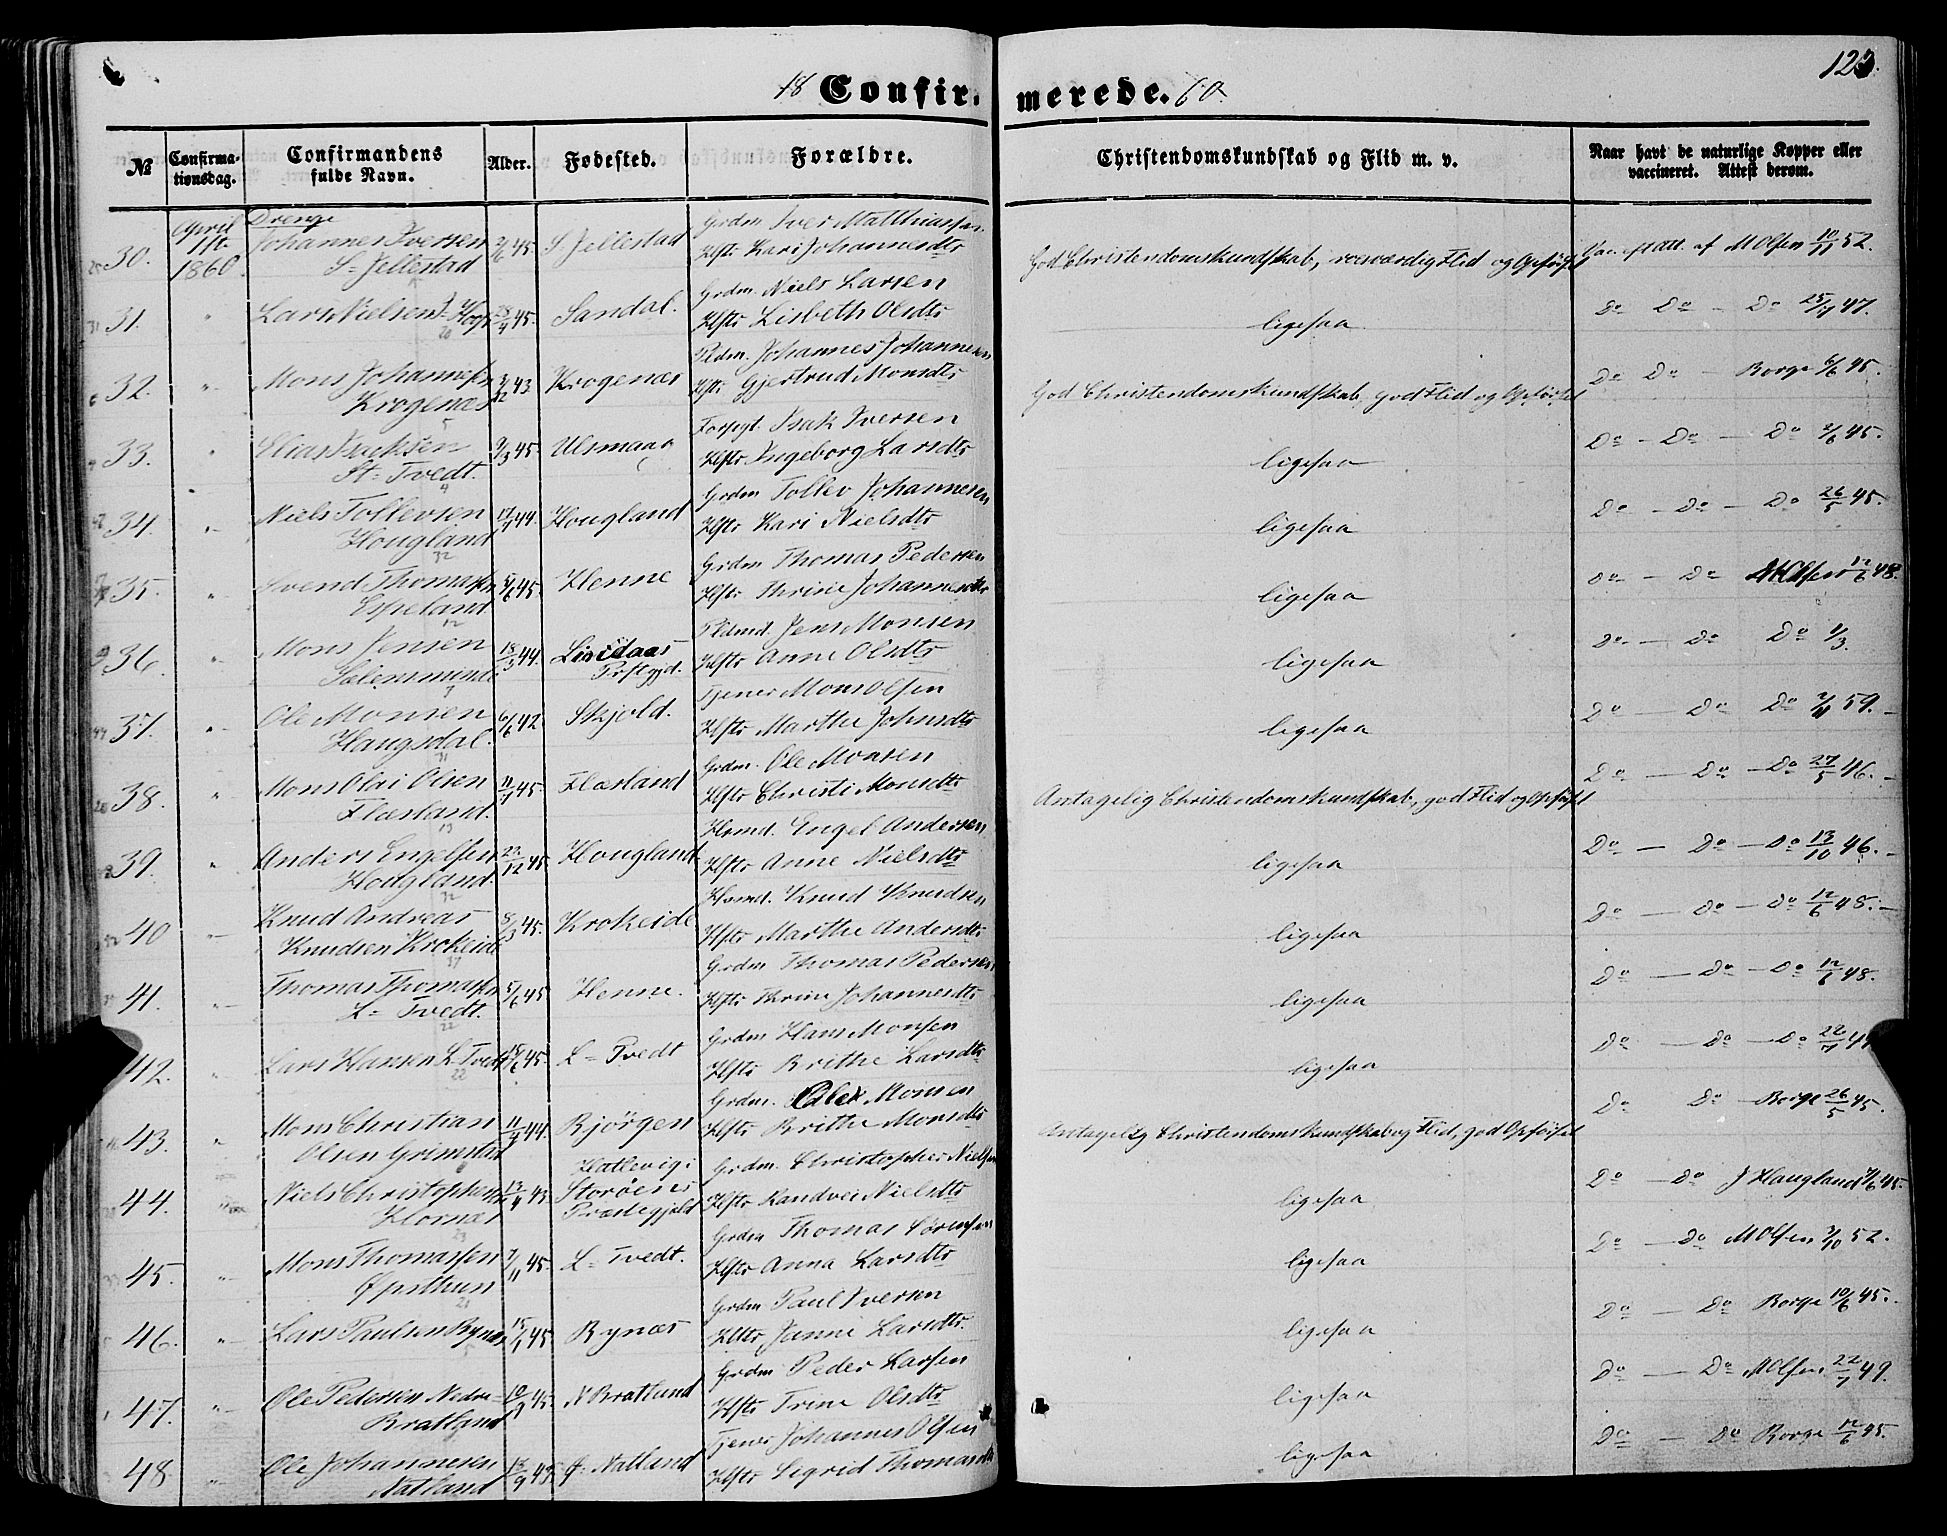 18 Confirmerede. 60.
123.
№ Confirmationsdag. Confirmandens fulde Navn. Alder. Fødested. Forældre. Christendomskundskab og Flid m. v. Naar havt de naturlige Kopper eller vaccineret. Attest derom.
April 1ste 1860. Drenge
30. Johannes Iversen S= Jellestad 45. S. Jellestad Grdm Iver Matthiassen Hstr Kari Johannesdtr God Christendomskundskab, roesværdig Flid og Opførsel Vac. eft Att. af M Olsen 10/11 52.
31. " Lars Nielsen Hop 28/9 45. Sandal. Grdm. Niels Larsen Hstr Lisbeth Olsdtr ligesaa Do Do - Do 47.
32. " Mons Johannessen Krogenæs 43 Krogenæs Johannes Johannesen Hstr Gjertrud Monsdtr God Christendomskundskab, god Flid og Opførsel Do Do - Borge 6/6 45.
33. " Elias Isaksen St= Tvedt. 45. Ulsmaag Isak Iversen Hstr Ingeborg Larsdtr ligesaa Do - Do - Do 2/6 45.
34. " Niels Tollevsen Hougland 44. Hougland Grdm Tollev Johannesen Hstr Kari Nielsdtr ligesaa Do - Do - Do 26/5 45.
35. " Svend Thomassen Espeland 5/6 45. Henne Grdm Thomas Pedersen Hstr Thrine Johannesdtr ligesaa Do - Do M Olsen 12/6 48.
36. " Mons Jensen Sælemminde 44. Lindaas Præstgjd. Jens Monsen Hstr Anne Olsdtr ligesaa Do - Do Do
37. " Ole Monsen Haugsdal. 42 Skjold. Tjener Mons Olsen Hstr Marthe Johnsdtr ligesaa Do - Do Do 59. -
38. " Mons Olai Olsen Flæsland. 45. Flæsland Grdm. Ole Monsen Hstr Christi Monsdtr Antagelig Christendomskundskab, god Flid og Opførsel Do - Do - Do 27/5 46. -
39. " Anders Engelsen Hougland. 45. Hougland Husmd. Engel Andersen Hstr Anne Nielsdtr ligesaa Do - Do - Do 13/10 46. -
40 " Knud Andreas Knudsen Krokeide 8/3 45. Krokeide Husmd. Knud Knudsen Hstr Marthe Andersdtr ligesaa Do - Do - Do 12/6 48. -
41. " Thomas Thomassen L= Tvedt. 5/6 45 Henne. Grdm Thomas Pedersen Hstr Thrine Johannesdtr ligesaa Do - Do - Do 12/6 48.
42. " Lars Hansen L. Tvedt 45. L= Tvedt Grdm Hans Monsen Hstr Brithe Larsdtr ligesaa Do - Do - Do 22/7
43. " Mons Christian Olsen Grimstad 44. Bjørgen Grdm. Ole Monsen Hstr Brithe Monsdtr Antagelig Christendomskundskab og Flid, god Opførsel Do Do - Borge 26/5 45.
44. " Niels Christophersen Hornæs 43. Hatlevig i Storøens Præstegjeld Grdm. Christopher Nielsen Hstr Randvei Nielsdtr ligesaa Do - Do J Haugland 45.
45. " Mons Thomassen Øpsthun 7/11 45. L= Tvedt. Grdm Thomas Sørensen Hstr Anna Larsdtr ligesaa Do - Do M Olsen 3/10 52.
46. " Lars Paulsen Bynæs 45. Bynæs Grdm Paul Iversen Hstr Janne Larsdtr. ligesaa Do - Do Borge 10/6 45.
47. " Ole Pedersen Nedre Bratland 45. N Bratland Grdm Peder Larsen Hstr Trine Olsdtr ligesaa Do - Do M Olsen 22/7 49.
48 " Ole Johannesen Natland 18/9 Natland Tjener Johannes Olsen Hstr Sigrid Thomasdtr ligesaa Do - Do Borge 12/6 45.